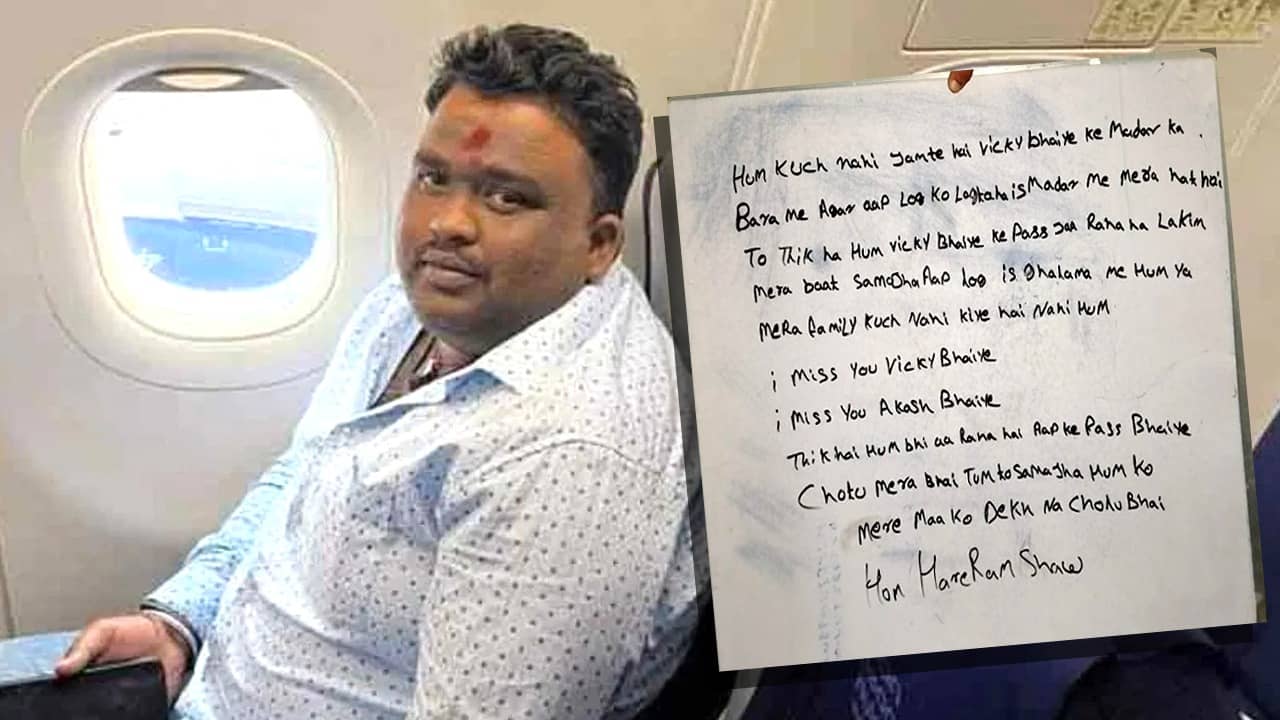 Hum Kuch nahi Jamte hai Vicky Bhaiye ke Madar ka .
Bara me Agar aap Log Ko Lagtaha is Madar me mera hat hai
To Thik ha Hum Vicky Bhaiye ke Pass Jaa Raha ha Lakin
mera baat Samjha Aap Log is Dhalama me Hum Ya
Mera family Kuch Nahi Kiye hai Nahi Hum
i Miss You Vicky Bhaiye
i Miss You Akash Bhaiye
Thik hai Hum bhi aa Raha hai Aap ke Pass Bhaiye
Chotu Mera Bhai Tum to Samajha Hum Ko
Mere Maa Ko Dekh Na Chotu Bhai
HareRam Shaw